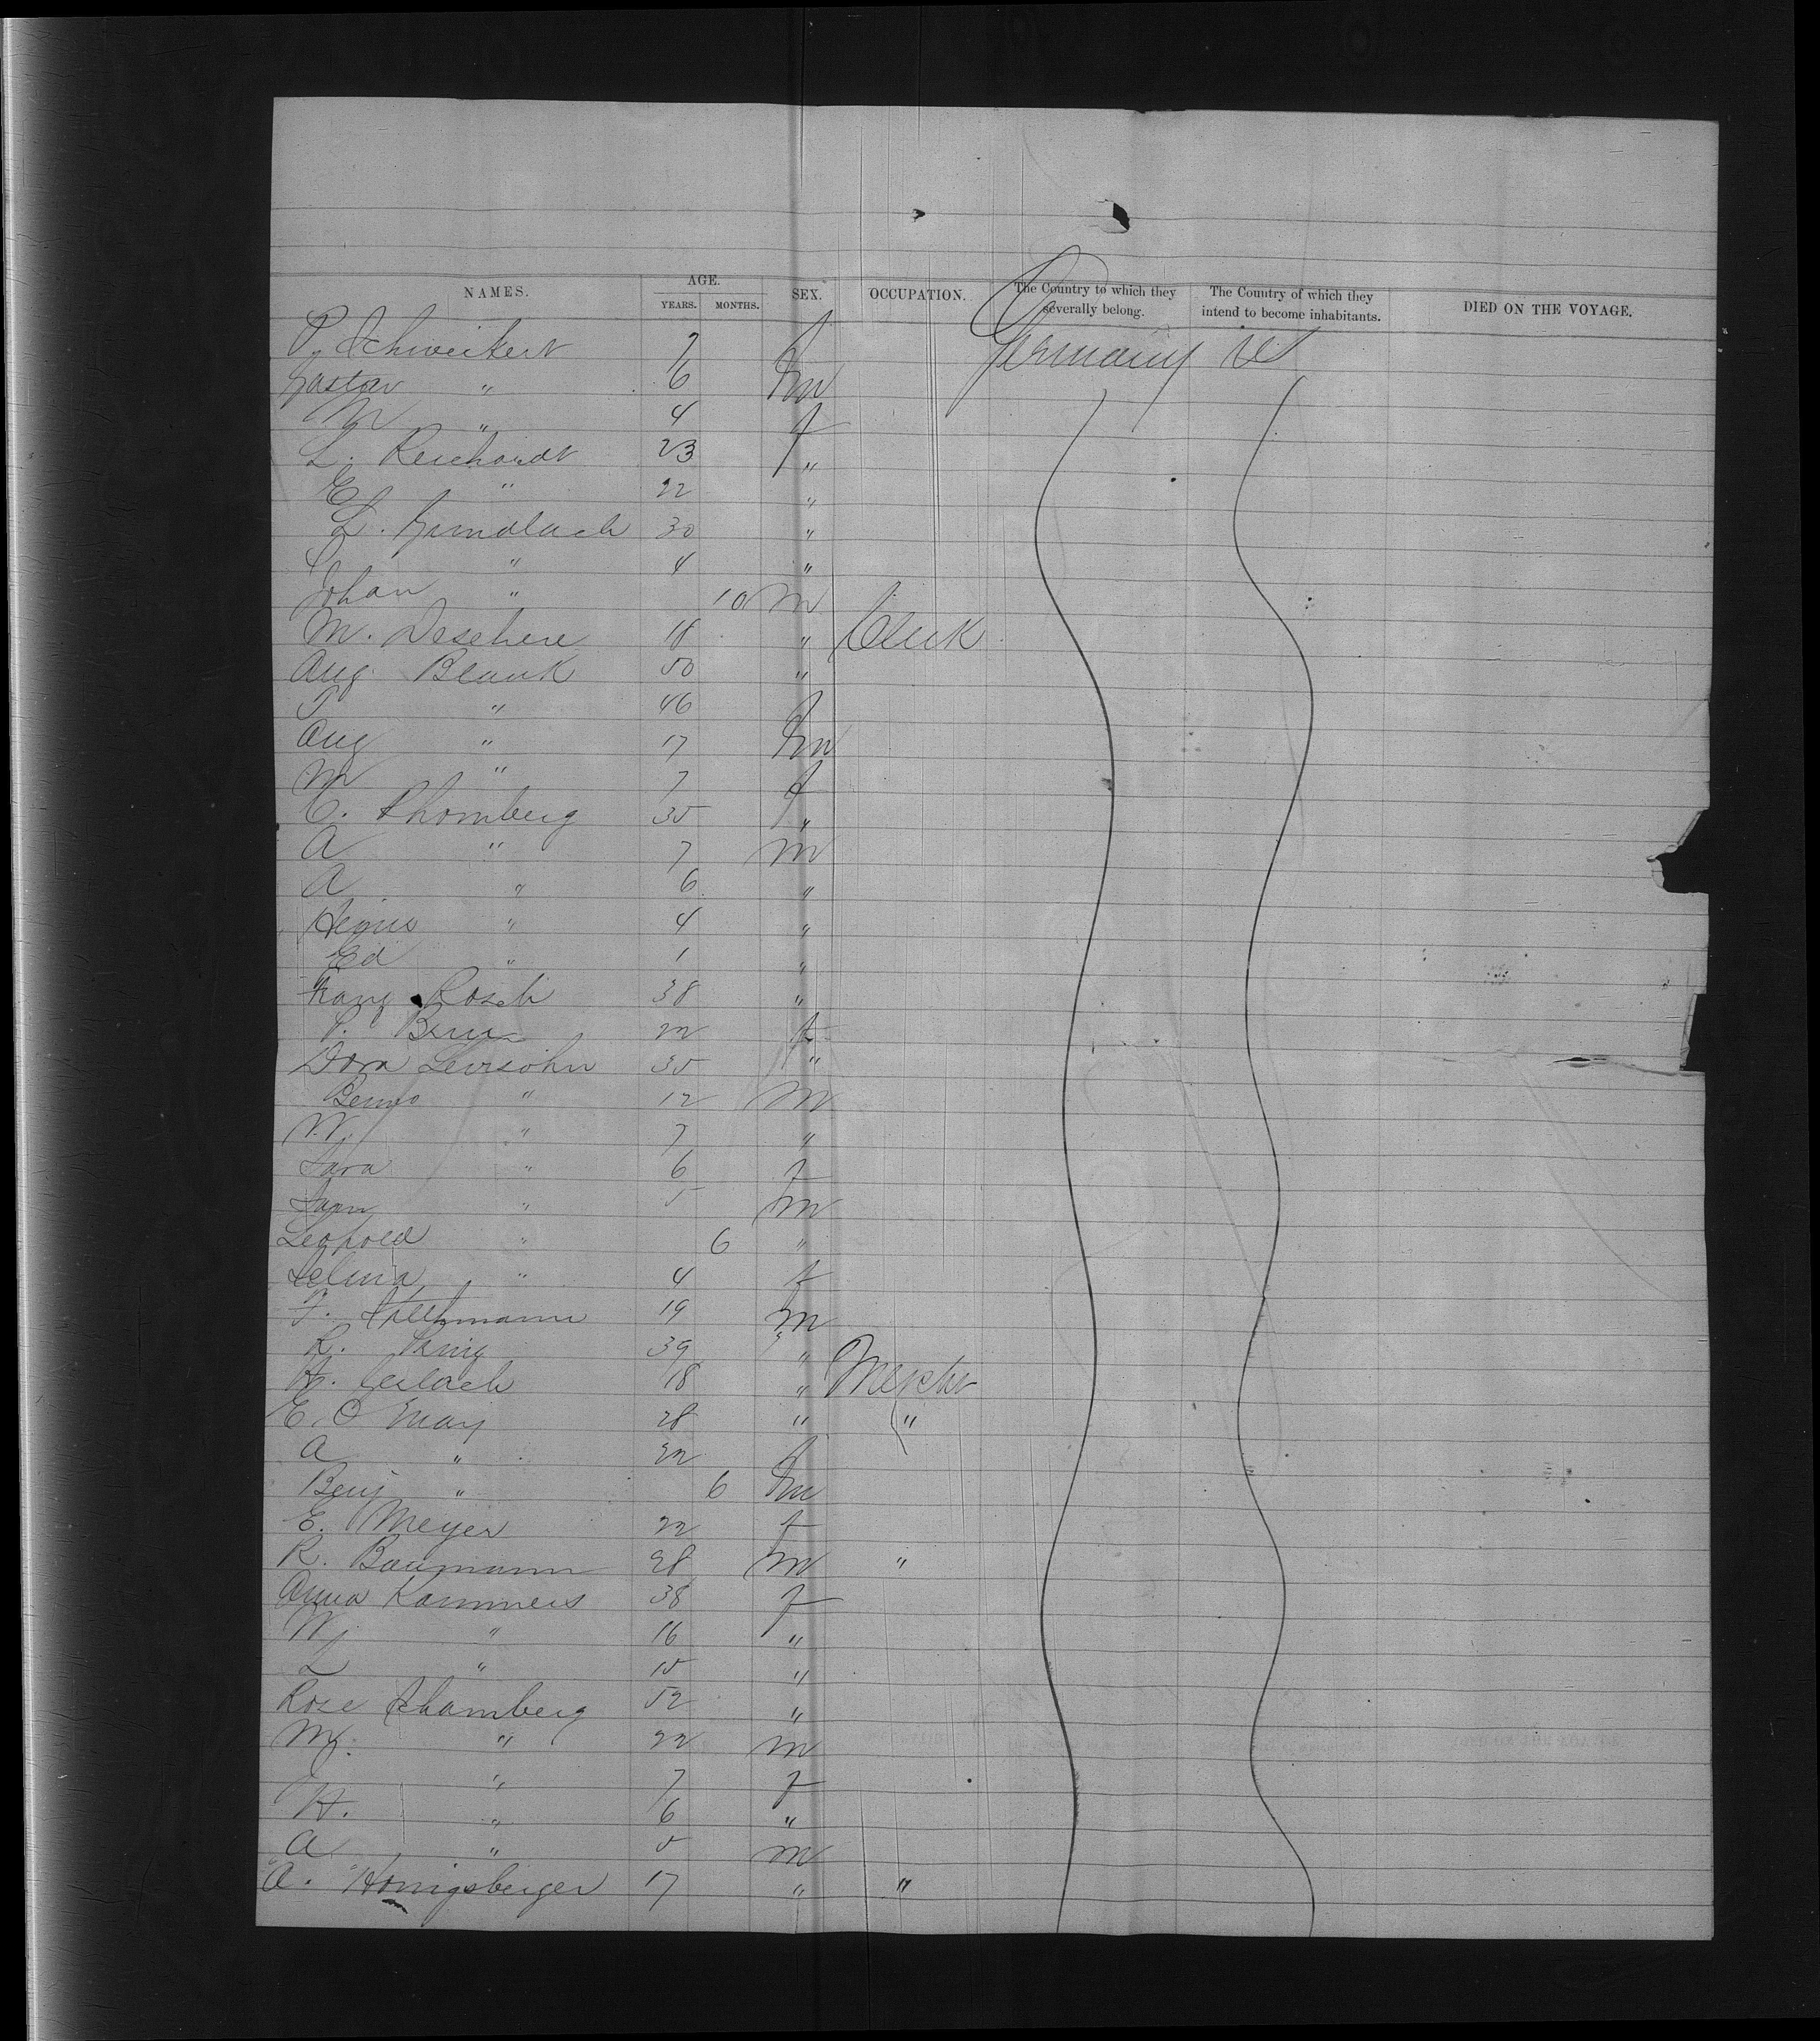 NAMES. AGE. YEARS. MONTHS. SEX. OCCUPATION. The Country to which they severally belong. The Country of which they intend to become inhabitants. DIED ON THE VOYAGE.
P. Schweikert 7 f Germany US
Gustav " 6 m
M " 4 f
L. Reichardt 23 "
E " 22 "
L. Grundlach 30 "
" 4 "
Johan " 10 m
M. Deschere 18 " Clerk
Aug. Blank 50 "
" 46 f
Aug " 17 m
M " 7 f
C. Rhomberg 35 "
A " 7 m
A " 6 "
" 4 "
Ed " 1 "
Franz Rosch 38 "
22 f
Dora Levisohn 35 "
Benno " 12 m
" 7 "
Sara " 6 f
" 5 m
Leopold " 6 "
Selma " 4 f
19 m
39 "
Gerlach 18 " Mercht
E. O May 28 " "
A " 22 f
Benj " 6 m
E. Meyer 22 f
R. Baumann 28 m "
Anna Kammers 38 f
" 16 "
L " 15 "
Rose Schamberg 52 "
M. " 22 m
" 7 f
H. " 6 "
A " 5 m
A. Honigsberger 17 " "